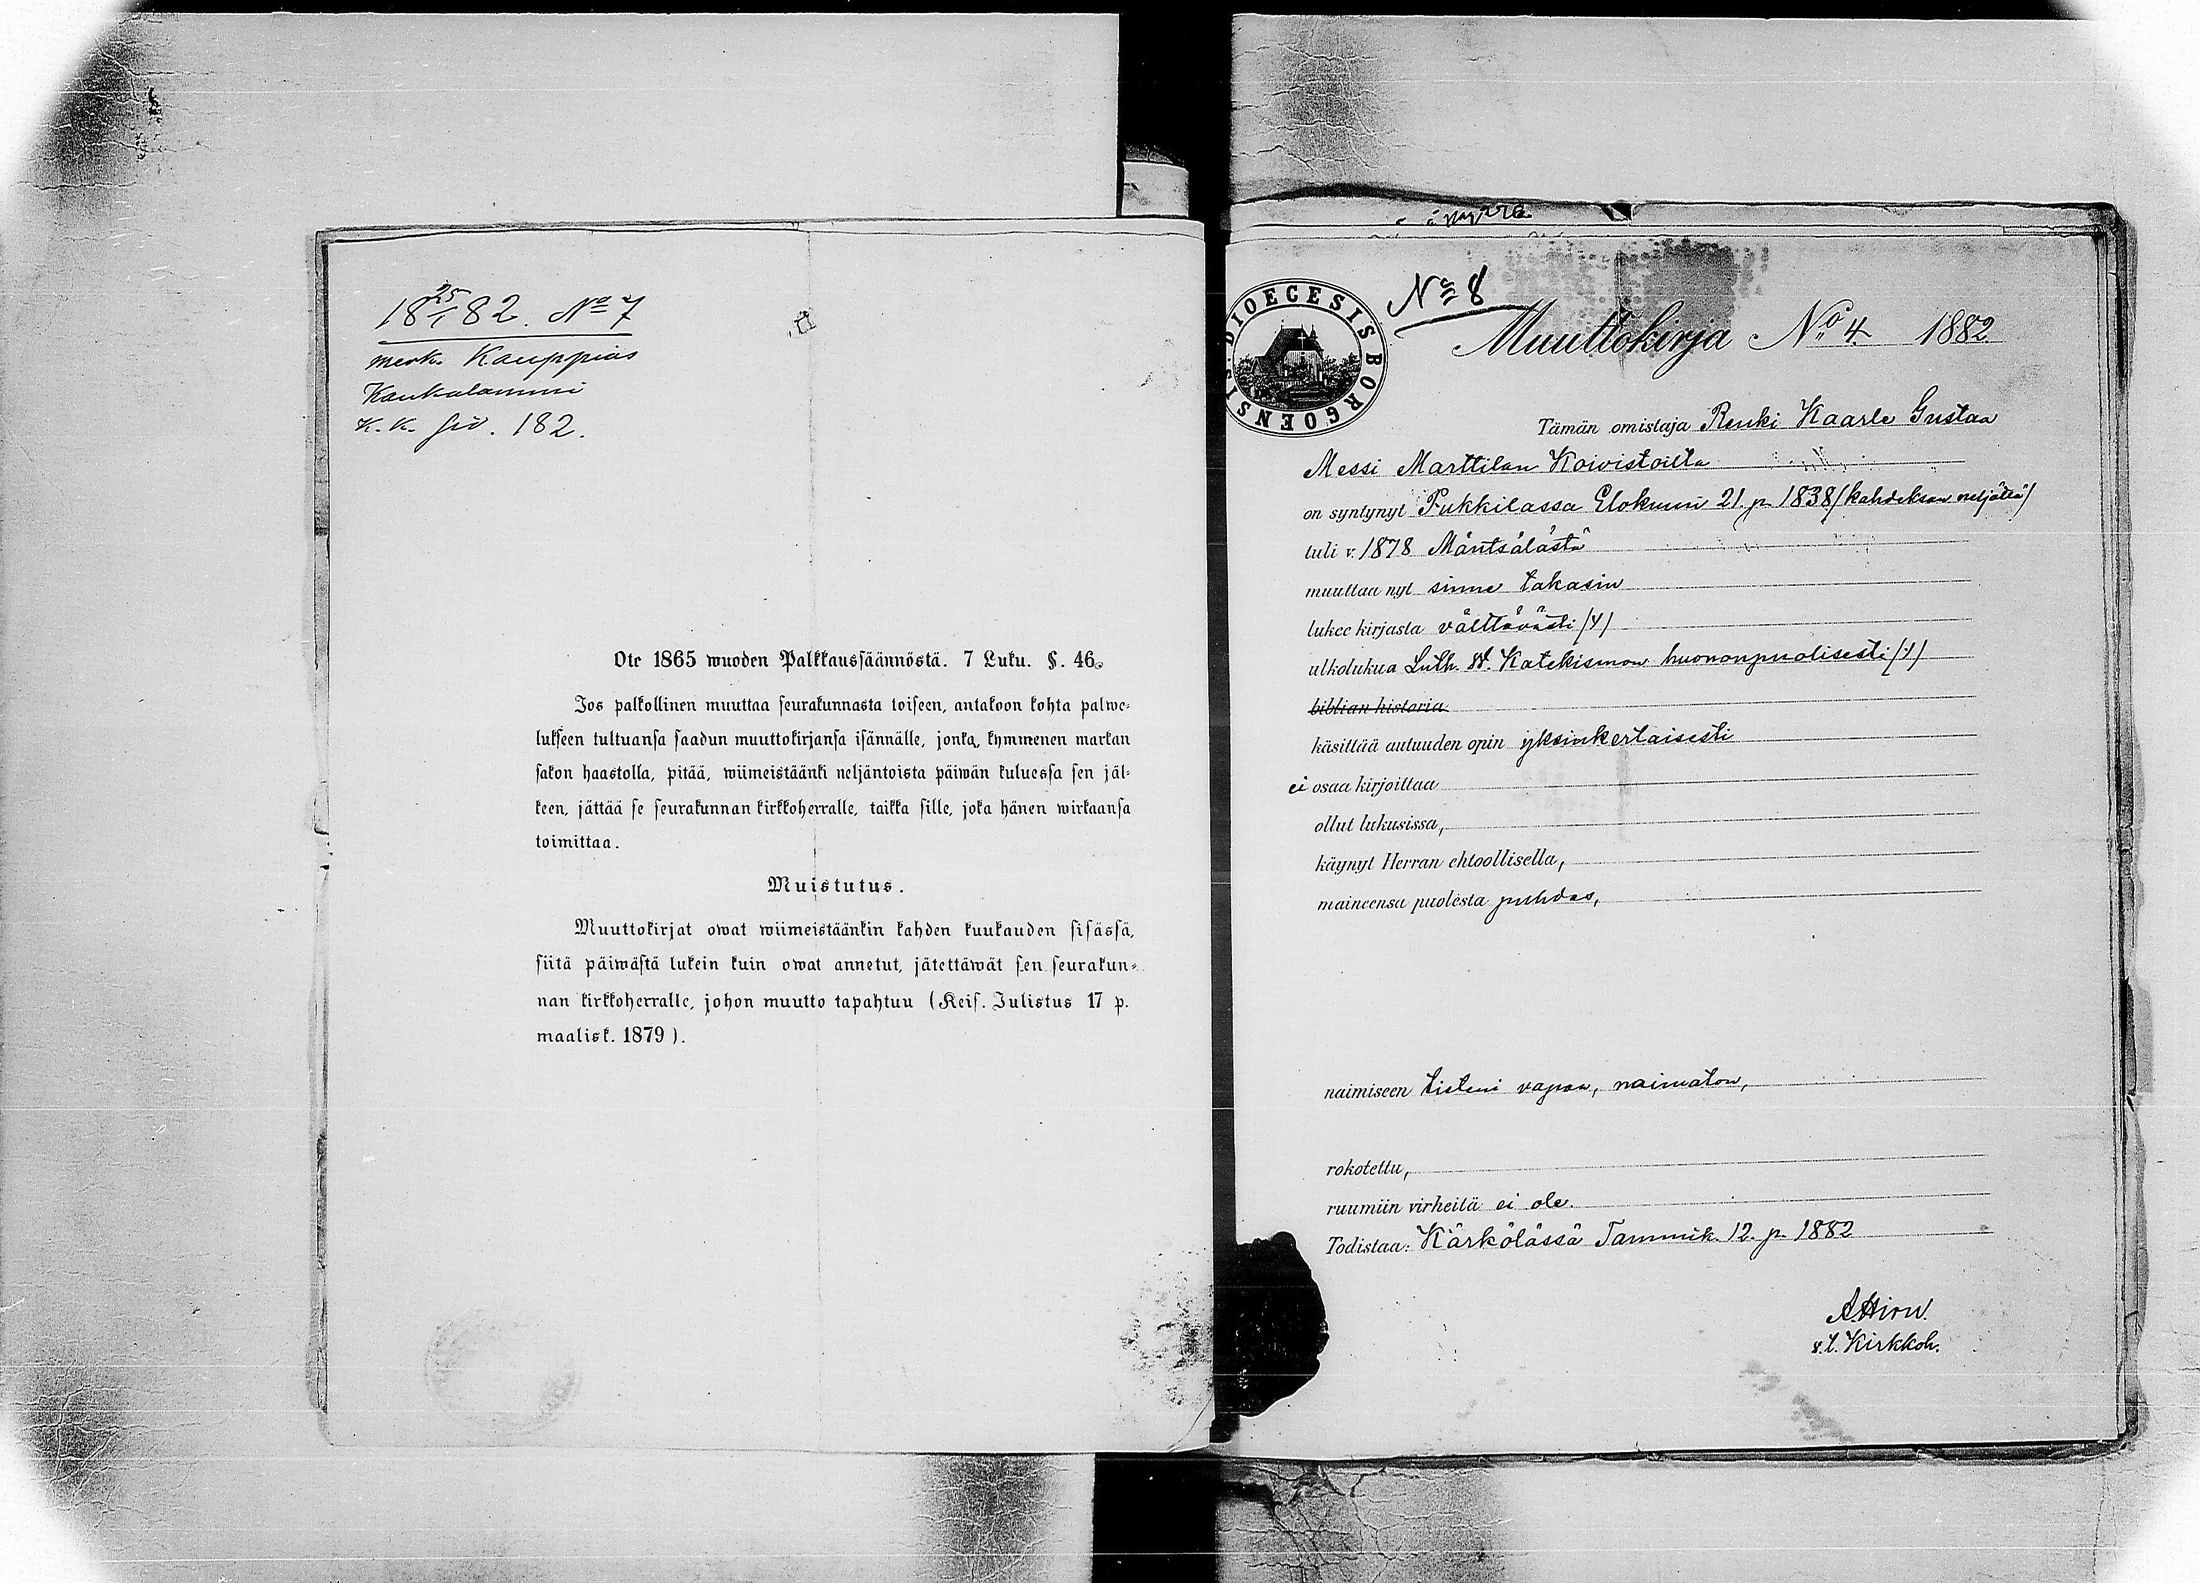 18 25/1 82. No 7
merk. Kauppias
Kaukalammi
K. K. siv. 182.
Ote 1865 wuoden Palkkaussäännöstä. 7 Luku. §. 46.
Jos palkollinen muuttaa seurakunnasta toiseen, antakoon kohta palwe-
lukseen tultuansa saadun muuttokirjansa isännälle, jonka, kymmenen markan
sakon haastolla, pitää, wiimeistäänki neljäntoista päiwän kuluessa sen jäl-
keen, jättää se seurakunnan kirkkoherralle, taikka sille, joka hänen wirkaansa
toimittaa.
Muistutus.
Muuttokirjat owat wiimeistäänkin kahden kuukauden sisässä,
siitä päiwästä lukein kuin owat annetut, jätettäwät sen seurakun-
nan kirkkoherralle, johon muutto tapahtuu (Keis. Julistus 17 p.
maalisk. 1879).
DIOECESIS BORGOENSIS
No 8
Muuttokirja No 4. 1882
Tämän omistaja Renki Kaarle Gustaa
Messi Marttilan Koivistoilta
on syntynyt Pukkilassa Elokuun 21. p. 1838 /kahdeksan neljättä/
tuli v. 1878 Mäntsälästä
muuttaa nyt sinne takasin
lukee kirjasta välttävästi /4/
ulkolukua Luth. v. Katekismon huononpuolisesti /1/
biblian historia
käsittää autuuden opin yksinkertaisesti
ei osaa kirjoittaa
ollut lukusissa,
käynyt Herran ehtoollisella,
maineensa puolesta puhdas,
naimiseen tieteni vapaa, naimaton,
rokotettu,
ruumiin virheitä ei ole.
Todistaa: Kärkölässä Tammik. 12. p. 1882
v. t. Kirkkoh.